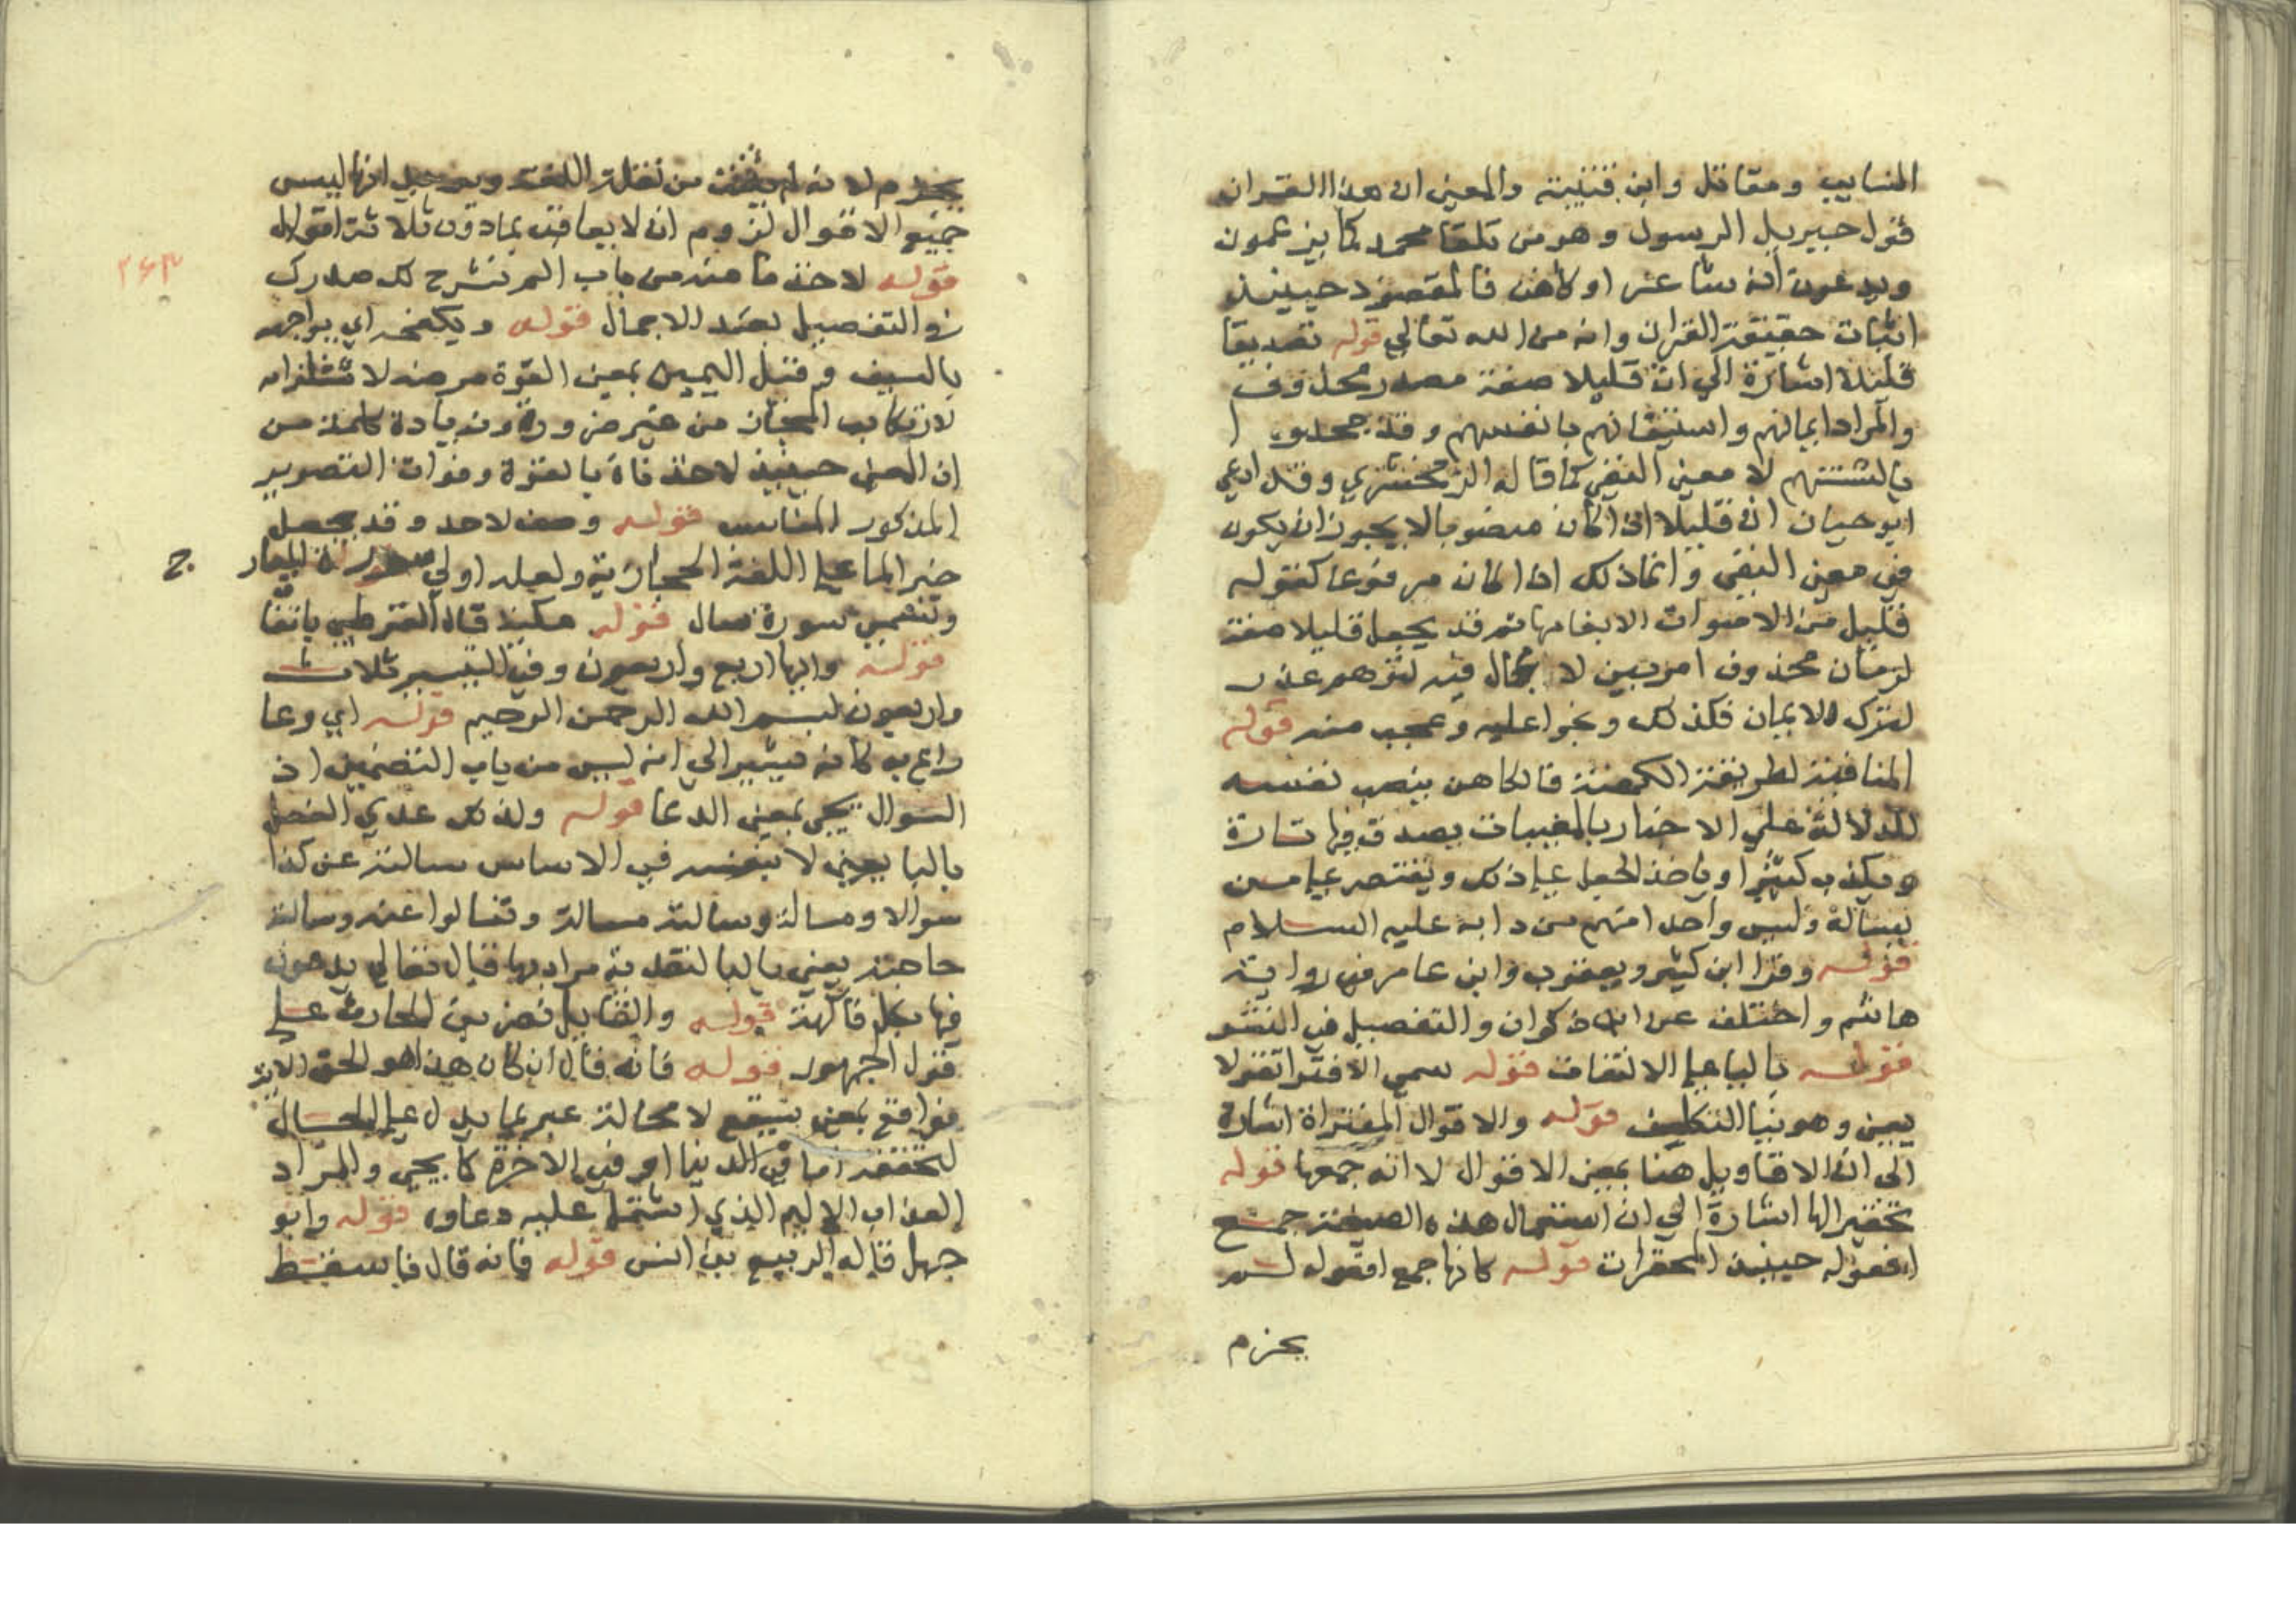 السايب ومقاتل وابن قتيبة والمعني ان هذا القران
قول جبريل الرسول وهو من تلقا محمد كما يزعمون
ويدعون انه شاعر او كاهن فالمقصود حينيذ
اثبات حقيقة القران وانه من الله تعالي قوله تصديقا
قليلا اشارة الي ان قليلا صفة مصدر محذوف
والمراد ايمانهم واستيقانهم بانفسهم وقد جحدو ا
بالسنتهم لا معني النفي كما قاله الزمخشري وقد ادعي
ابو حيان ان قليلا اذا كان منصوبا لا يجوز ان يكون
في معني النفي وانما ذلك اذا كان مرفوعا كقوله
قليل من الاصوات الا بغامها ثم قد يجعل قليلا صفة
لزمان محذوف امر بين لا مجال فيه لتوهم عذر
لترك الايمان فكذلك وبخوا عليه وعجب منه قوله
المنافية لطريقة الكهنة فالكاهن ينصب نفسه
للدلالة علي الاخبار بالمغيبات يصدق فيها تارة
ويكذب كثيرا وياخذ الجعل علي ذلك ويقتصر علي من
يساله وليس واحد امنهم من دابه عليه السلام
قوله وقرا ابن كثير ويعقوب وابن عامر في رواية
هاشم واختلف عن ابن ذكوان والتفصيل في النشر
قوله باليا علي الالتفات قوله سمي الافترا تقولا
يبين وهو بنيا التكلف قوله والاقوال المفتراة اشارة
الي ان الاقاويل هنا بمعني الاقوال لا انه جمعها قوله
تحقيرا لها اشارة الي ان استعمال هذه الصيغة جمع
افعوله حينيذ المحقرات قوله كانها جمع افعوله لم
بجزم
بجزم لانه لم يثبت من نقلة اللغة انها ليس
جميع الاقوال لزوم ان لا يعاقب بما دون ثلاثة اقوال
٢٦٣
قوله لاخذنا منه من باب الم نشرح لك صدرك
في التفصيل بعد الاجمال قوله ويكفحه اي يواجهه
بالسيف وقيل اليمين بمعني القوة مرضه لاستلزامه
لارتكاب المجاز من غير ضرورة وزيادة كلمة من
ان المعني حينيذ لاخذناه بالقوة وفوات التصوير
المذكور المناسب قوله وصف لاحد وقد يجعل
خبر الما علي اللغة الحجازية ولعله اولي
وتسمي سورة سال قوله مكية قال القرطبي باتفاق
قوله وايها اربع واربعون وفي التيسير ثلاث
واربعون بسم الله الرحمن الرحيم قوله اي دعا
داع به كانه يشير الي انه ليس من باب التضمين اذ
السوال يجي بمعني الدعا قوله ولذلك عدي الفعل
باليا يعني لا بنفسه في الاساس سالته عن كذا
سوالا ومسالة وسالته مسالة وتسالوا عنه وسالته
حاجة يعني باليا لتعدية مراد بها قال تعالي يدعون
فيها بكل فاكهة قوله والقايل نضر بن الحارث علي
قول الجمهور قوله فانه قال ان كان هذا هو الحق الاية
فواقع بمعني سيقع لا محالة عبر بما يدل علي الحال
لتحققه اما في الدنيا او في الاخرة كما يجي والمراد
العذاب الاليم الذي اشتمل عليه دعاوه قوله وابو
جهل قاله الربيع بن انس قوله فانه قال فاسقط